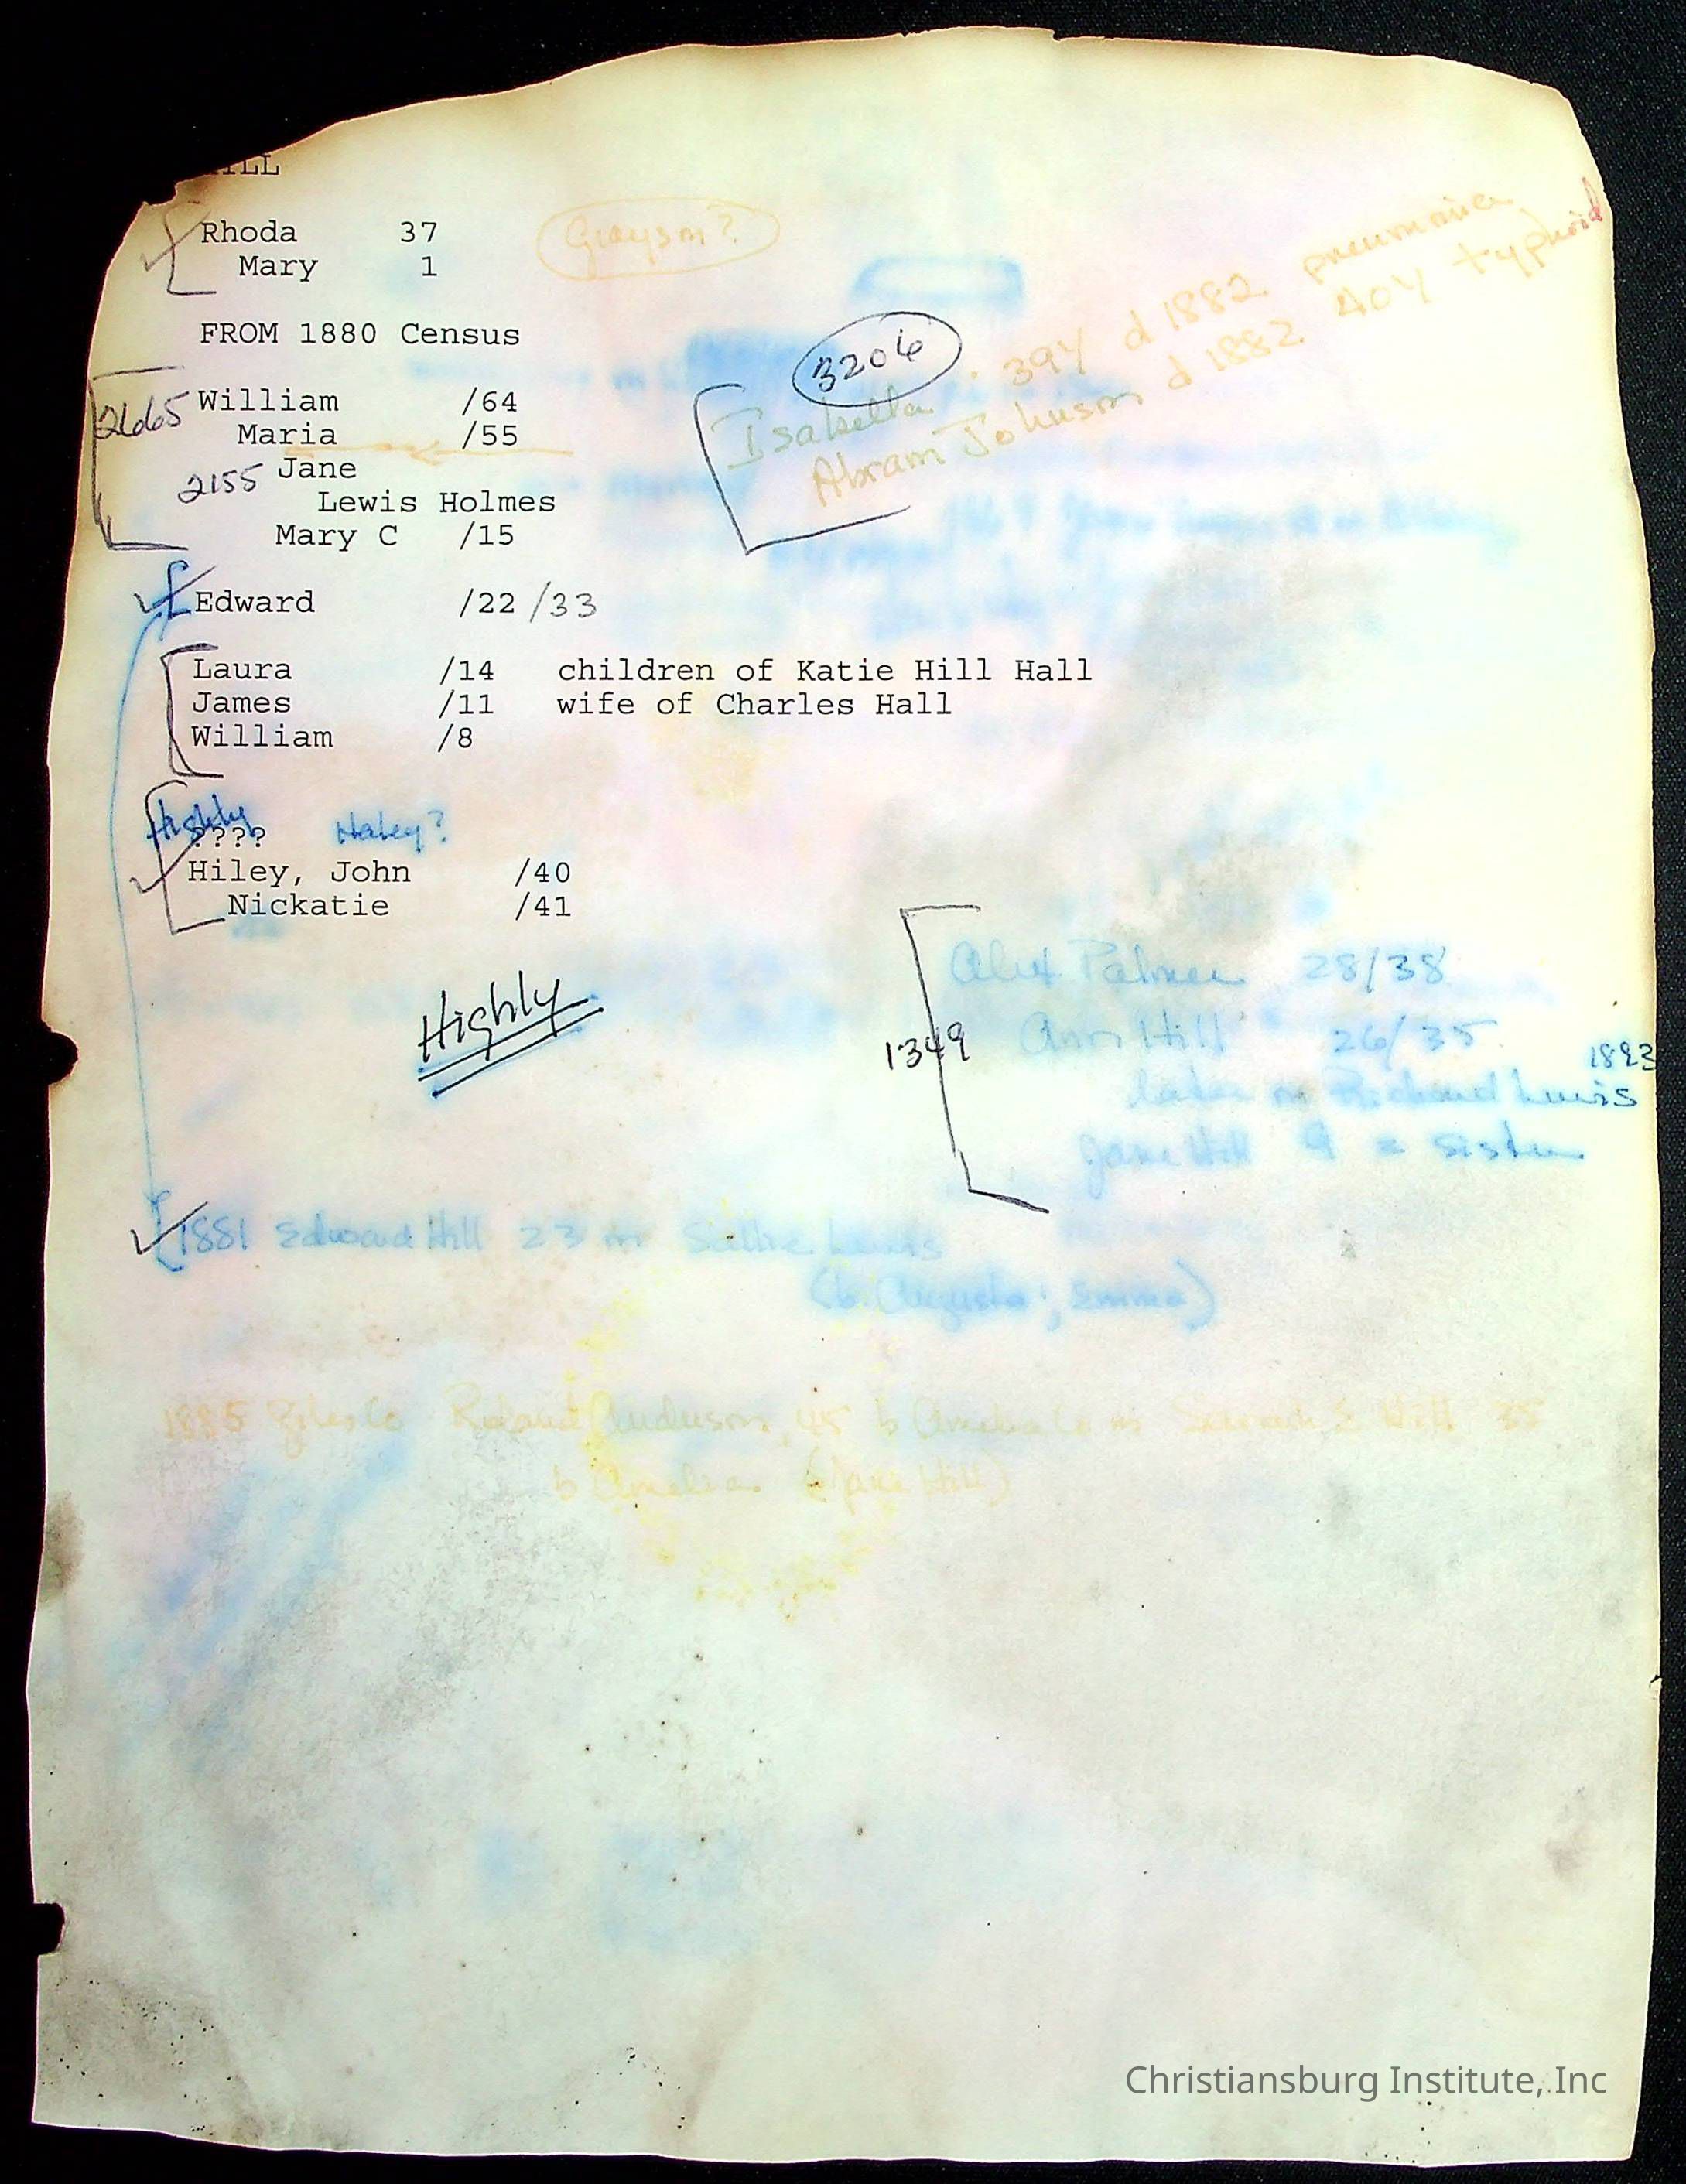 HILL
Rhoda 37 Grayson?
Mary 1
FROM 1880 Census
2665 William /64
Maria /55
2155 Jane
Lewis Holmes
Mary C /15
3206
Isabella 39Y d 1882 pneumonia
Abram Johnson d 1882 40Y typhoid
Edward /22 /33
Laura /14 children of Katie Hill Hall
James /11 wife of Charles Hall
William /8
Highly
???? Haley?
Hiley, John /40
Nickatie /41
Highly
1349
Alex Palmer 28/38
Ann Hill 26/35
1893
later m Richard Lewis
Jane Hill 9 = sister
1881 Edward Hill 23 m Sallie Lewis
(b Augusta; Emma)
1885 Giles Co Roland Anderson, 45 b Amelia Co m E Hill 35
b Amelia (Jane Hill)
Christiansburg Institute, Inc